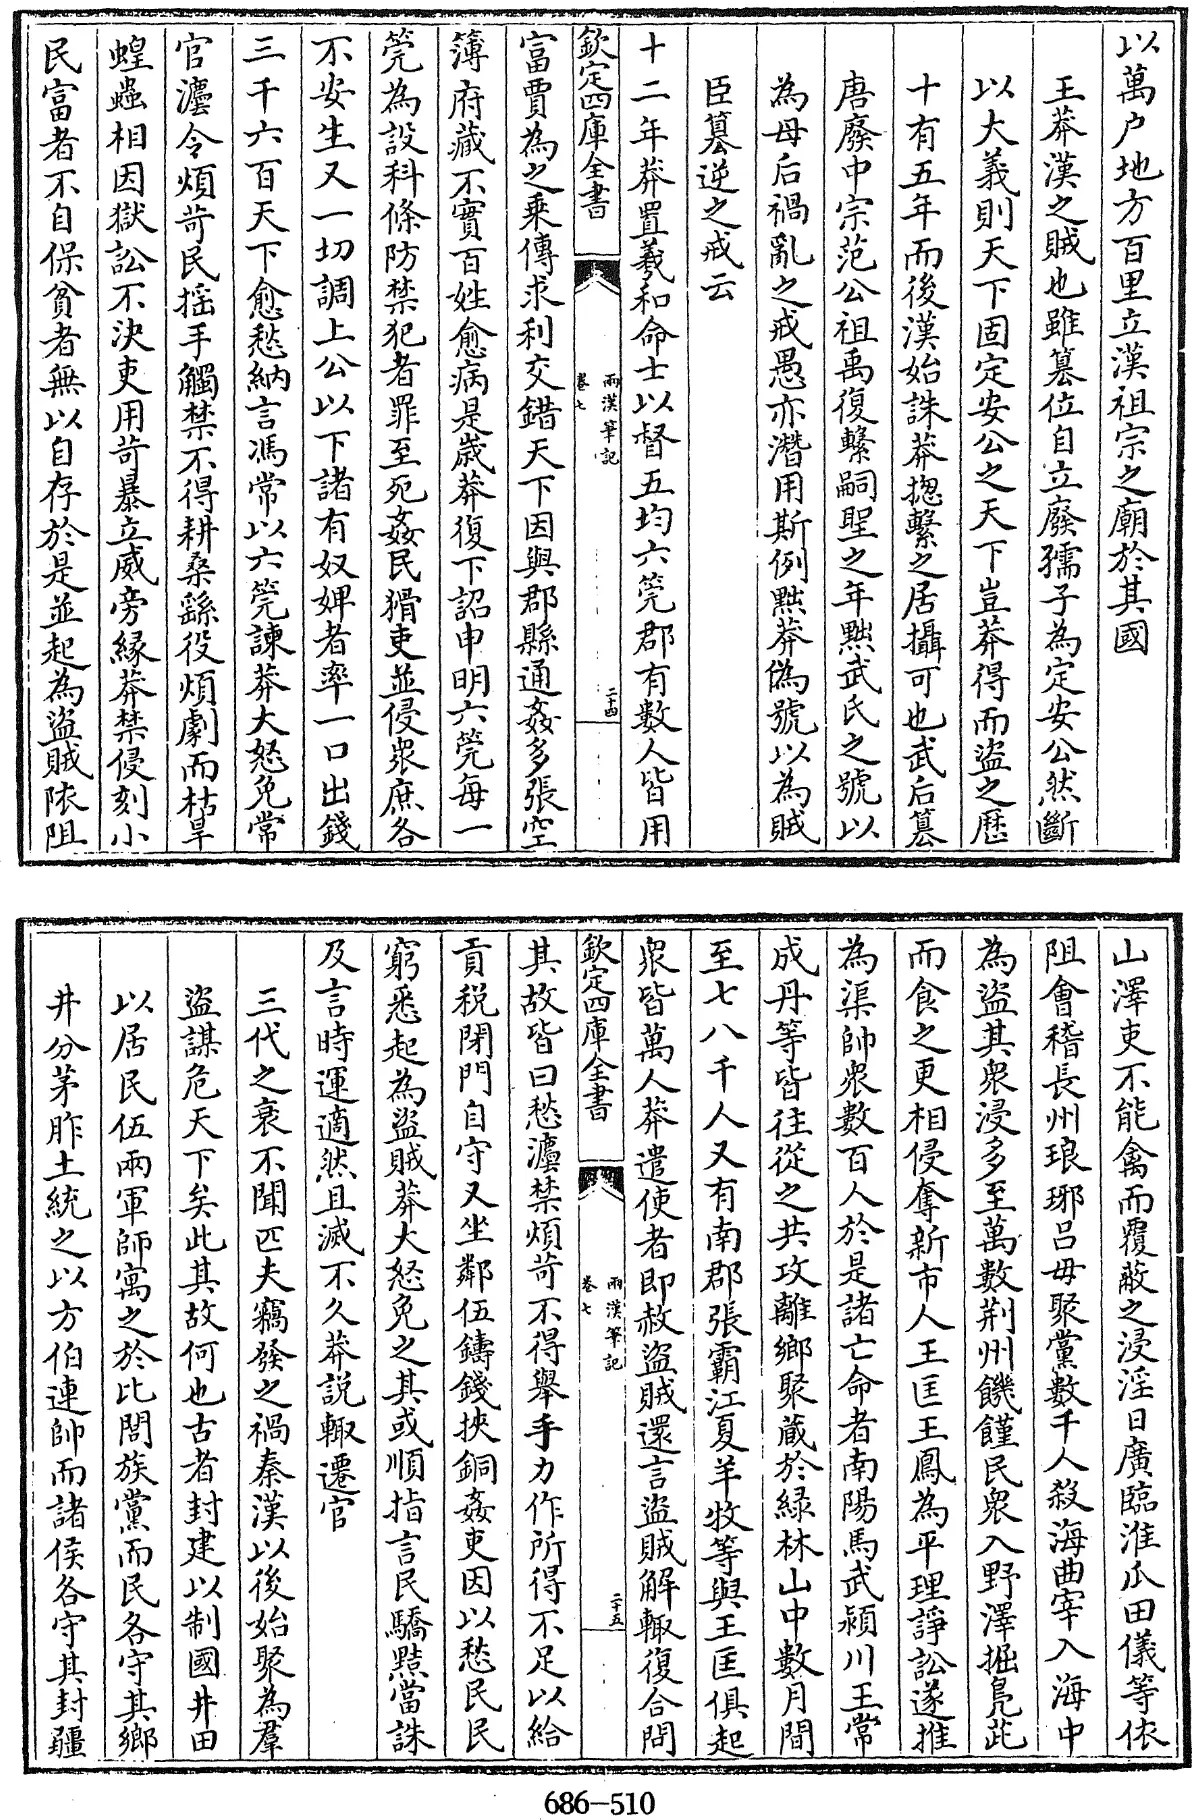 以萬户地方百里立漢祖宗之廟於其國
王莽漢之賊也雖簒位自立廢孺子為定安公然斷
以大義則天下固定安公之天下豈莽得而盜之歴
十有五年而後漢始誅莽揔繫之居攝可也武后簒
唐廢中宗范公祖禹復繫嗣聖之年黜武氏之號以
為母后禍亂之戒愚亦潛用斯例黜莽偽號以為賊
臣簒逆之戒云
十二年莽置羲和命士以督五均六筦郡有數人皆用
欽定四庫全書
兩漢筆記
卷七
二十四
富賈為之乗傳求利交錯天下因與郡縣通姦多張空
簿府藏不實百姓愈病是歲莽復下詔申明六筦每一
筦為設科條防禁犯者罪至死姦民猾吏並侵衆庶各
不安生又一切調上公以下諸有奴婢者率一口出錢
三千六百天下愈愁納言馮常以六筦諫莽大怒免常
官灋令煩苛民揺手觸禁不得耕桑繇役煩劇而枯旱
蝗蟲相因獄訟不決吏用苛暴立威旁緣莽禁侵刻小
民富者不自保貧者無以自存於是並起為盜賊依阻
山澤吏不能禽而覆蔽之浸淫日廣臨淮瓜田儀等依
阻會稽長州琅琊吕母聚黨數千人殺海曲宰入海中
為盜其衆浸多至萬數荆州饑饉民衆入野澤掘鳧茈
而食之更相侵奪新市人王匡王鳳為平理諍訟遂推
為渠帥衆數百人於是諸亡命者南陽馬武潁川王常
成丹等皆往從之共攻離鄉聚藏於緑林山中數月間
至七八千人又有南郡張霸江夏羊牧等與王匡俱起
衆皆萬人莽遣使者即赦盜賊還言盜賊解輙復合問
欽定四庫全書
兩漢筆記
卷七
二十五
其故皆曰愁灋禁煩苛不得舉手力作所得不足以給
貢税閉門自守又坐鄰伍鑄錢挾銅姦吏因以愁民民
窮悉起為盜賊莽大怒免之其或順指言民驕黠當誅
及言時運適然且滅不久莽説輙遷官
三代之衰不聞匹夫竊發之禍秦漢以後始聚為羣
盜謀危天下矣此其故何也古者封建以制國井田
以居民伍兩軍師寓之於比閭族黨而民各守其鄉
井分茅胙土統之以方伯連帥而諸侯各守其封疆
686-510